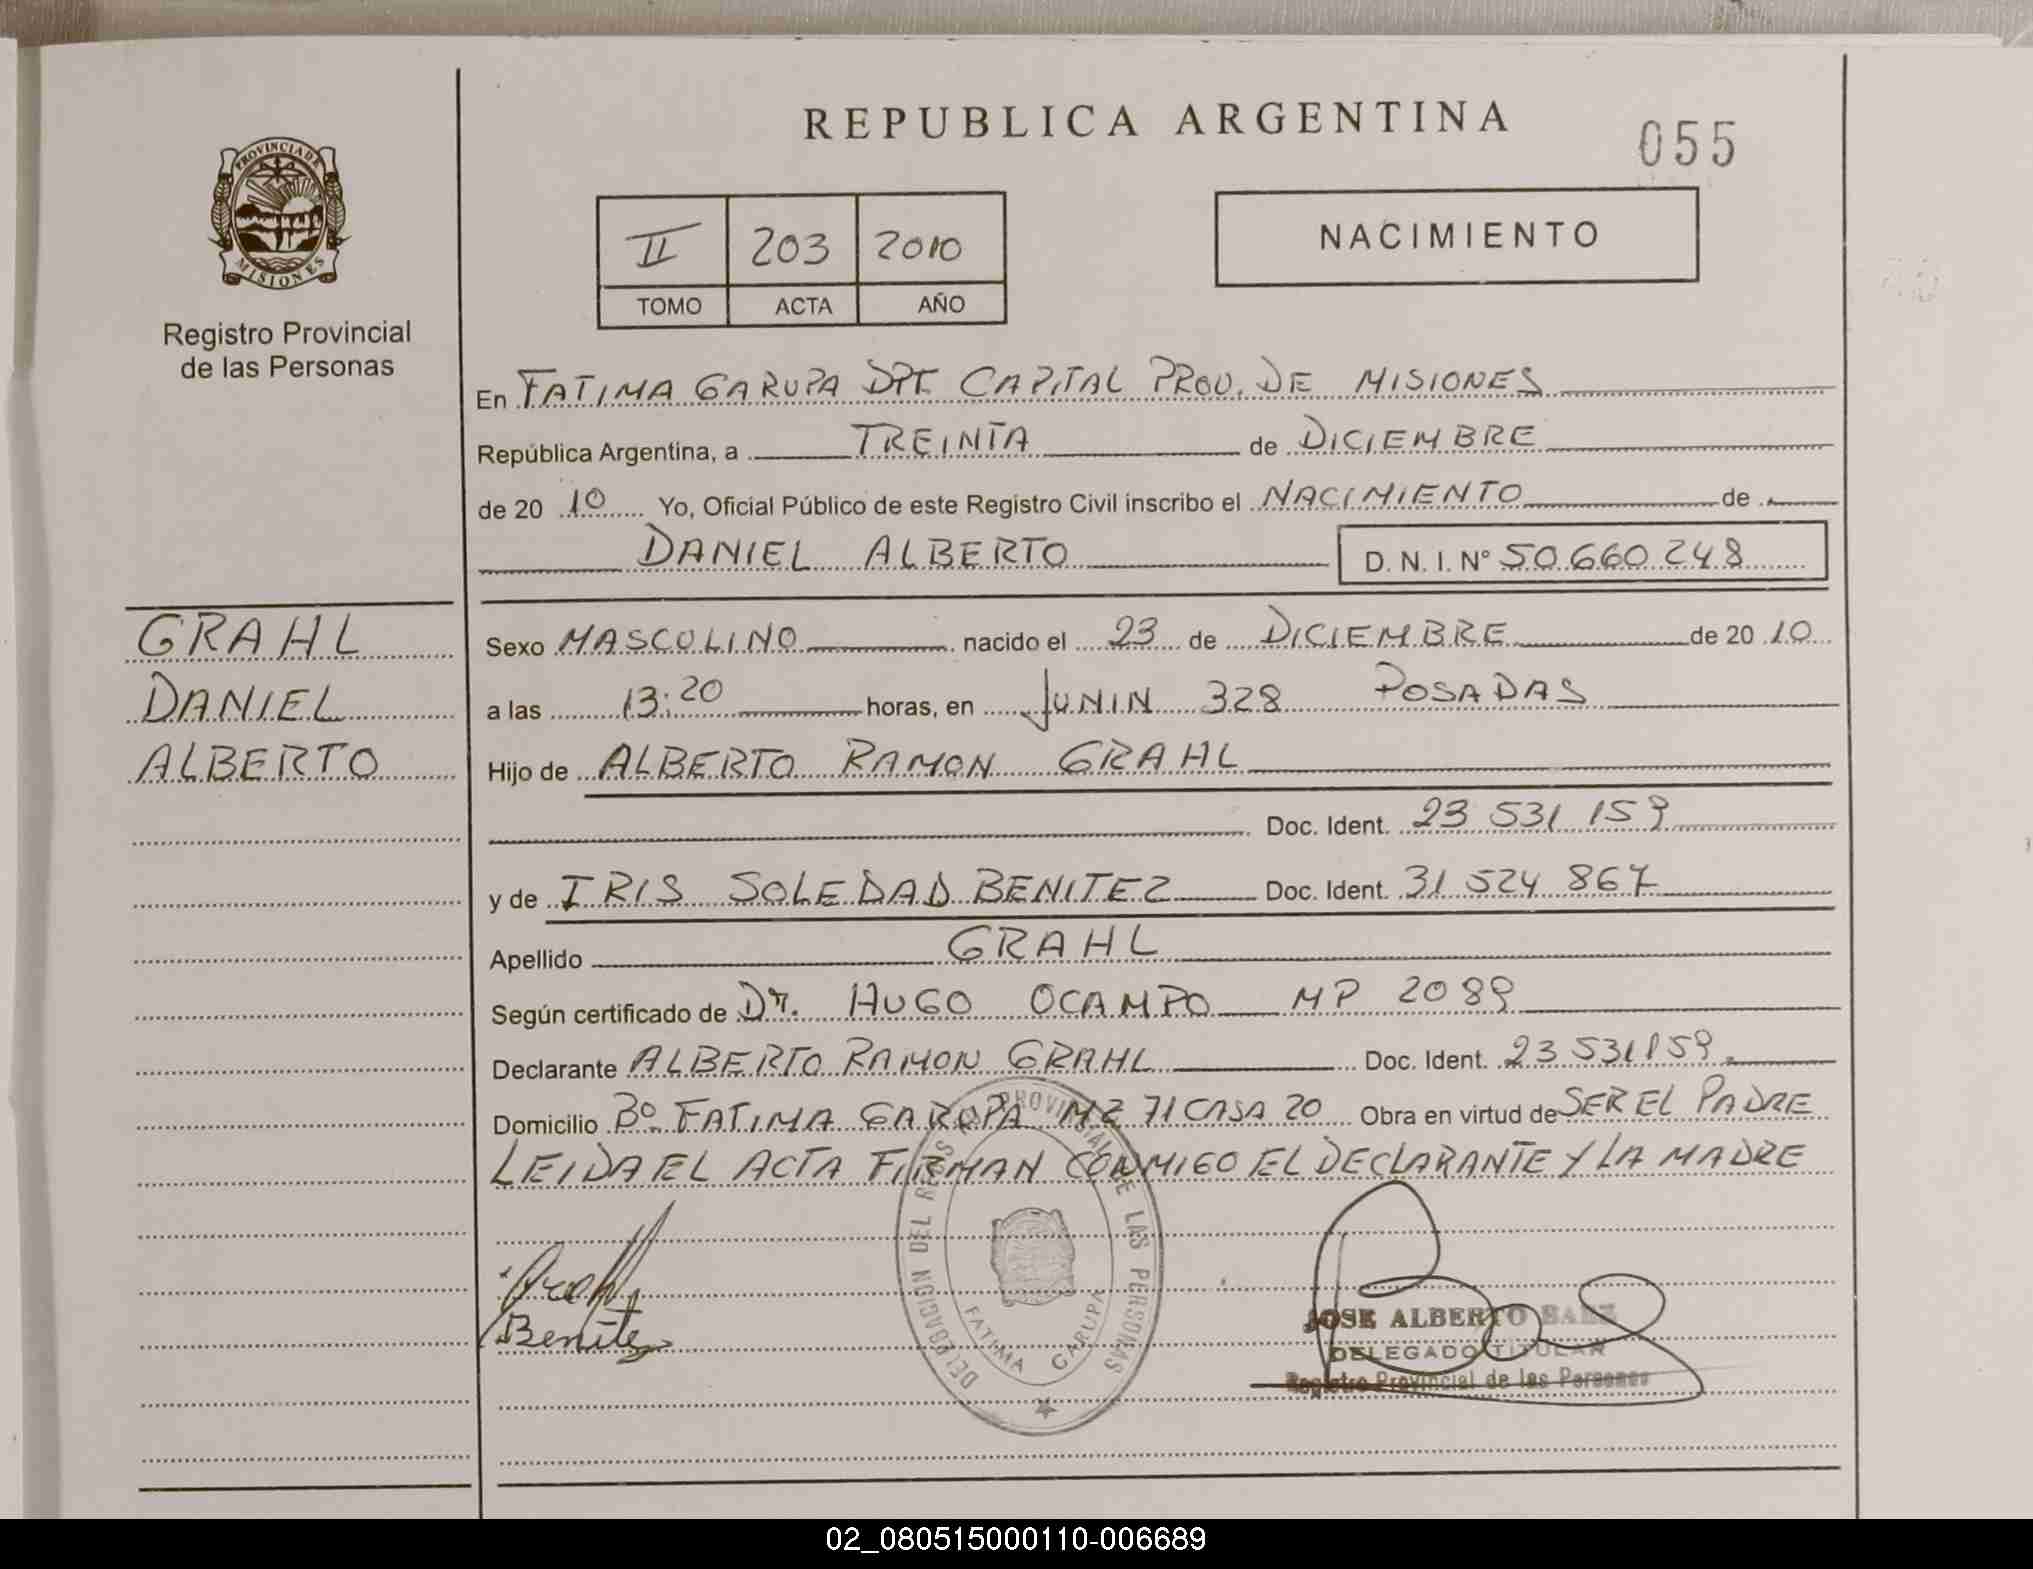 REPUBLICA ARGENTINA
055
PROVINCIA DE
MISIONES
Registro Provincial
de las Personas
II 203 2010
TOMO ACTA AÑO
NACIMIENTO
En FATIMA GARUPA DPT. CAPITAL PROV. DE MISIONES
República Argentina, a TREINTA de DICIEMBRE
de 20 10 Yo, Oficial Público de este Registro Civil inscribo el NACIMIENTO de
DANIEL ALBERTO D. N. I. N° 50.660.248
GRAHL
DANIEL
ALBERTO
Sexo MASCOLINO nacido el 23 de DICIEMBRE de 20 10
a las 13:20 horas, en JUNIN 328 POSADAS
Hijo de ALBERTO RAMON GRAHL
Doc. Ident. 23 531 159
y de IRIS SOLEDAD BENITEZ Doc. Ident. 31 524 867
Apellido GRAHL
Según certificado de Dr. HUGO OCAMPO MP 2089
Declarante ALBERTO RAMON GRAHL Doc. Ident. 23 531 159
Domicilio B° FATIMA GARUPA MZ 71 CASA 20 Obra en virtud de SER EL PADRE
LEIDA EL ACTA FIRMAN CONMIGO EL DECLARANTE Y LA MADRE
Grahl
Benitez
DELEGACION DEL REGISTRO PROVINCIAL DE LAS PERSONAS
FATIMA GARUPA
JOSE ALBERTO BAEZ
DELEGADO TITULAR
Registro Provincial de las Personas
02_080515000110-006689